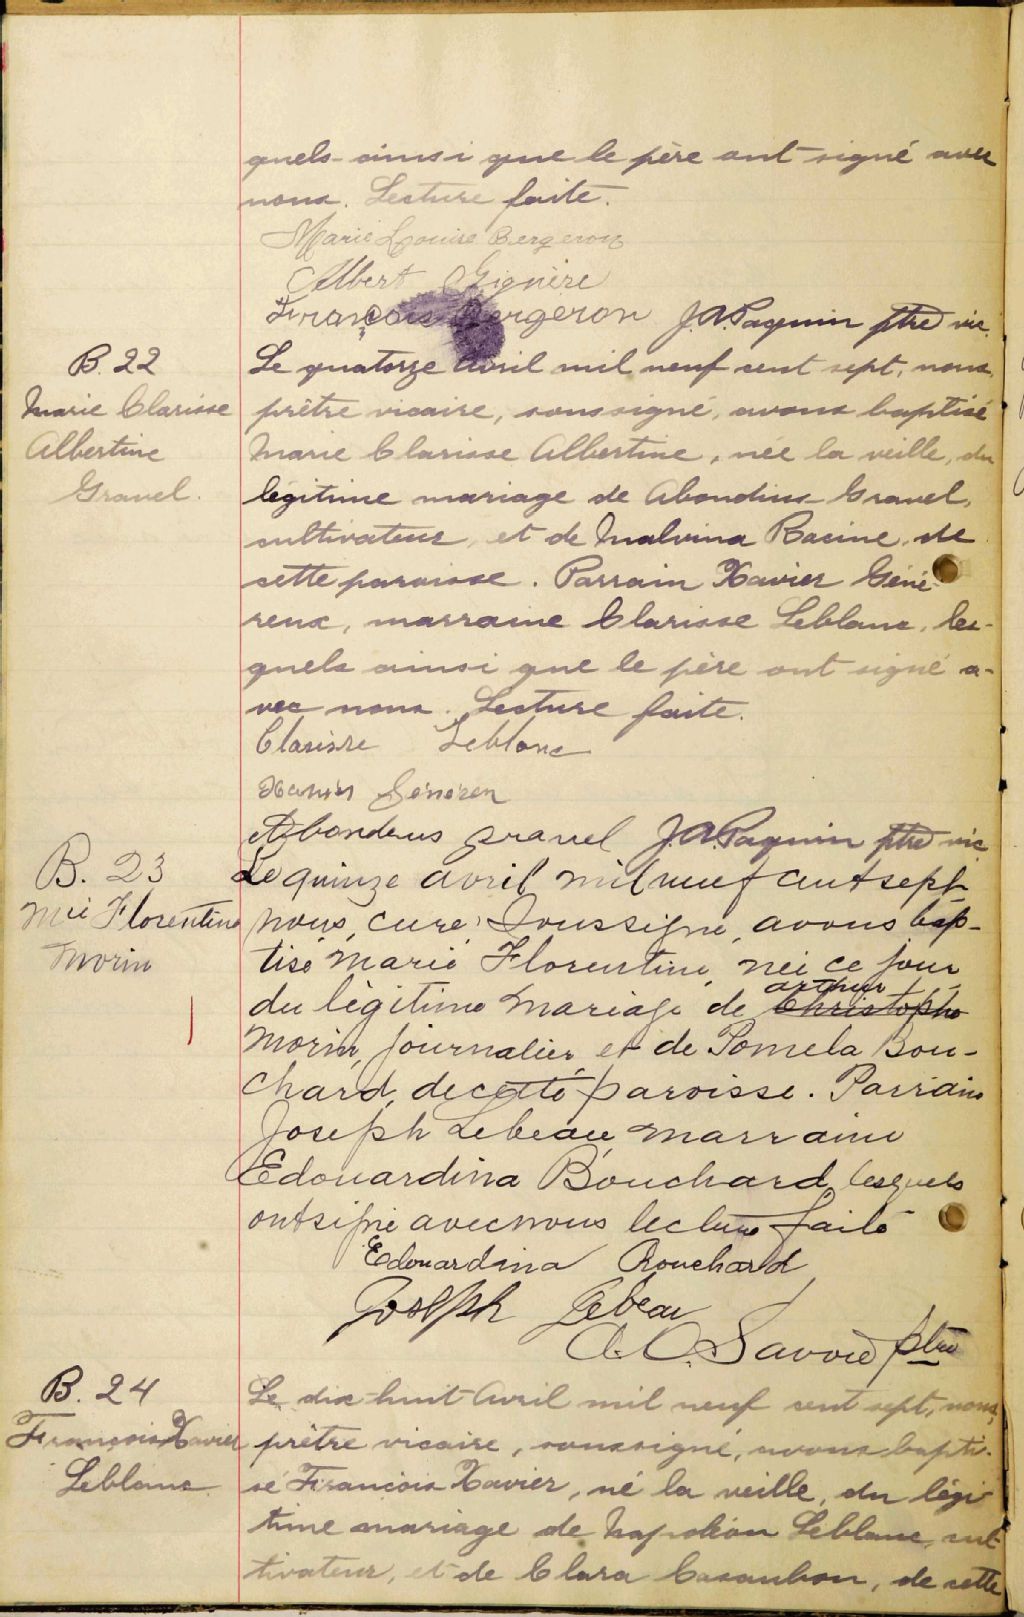 quels ainsi que le père ont signé avec
nous. Lecture faite.
Marie Louise Bergeron
Albert Gignère
François Bergeron J.A. Paquin ptre vic.
B. 22
Marie Clarisse
Albertine
Gravel.
Le quatorze avril mil neuf cent sept, nous,
prêtre vicaire, soussigné, avons baptisé
Marie Clarisse Albertine, née la veille, du
légitime mariage de Abondius Gravel,
cultivateur, et de Malvina Racine, de
cette paroisse. Parrain Xavier Géné-
reux, marraine Clarisse Leblanc, les-
quels ainsi que le père ont signé a-
vec nous. Lecture faite.
Clarisse Leblanc
Xavier
Abondeus Gravel J.A. Paquin ptre vic
B. 23
Mie Florentine
Morin
Le quinze avril mil neuf cent sept
nous, curé soussigné, avons bap-
tisé Marie Florentine, née ce jour
du légitime mariage de Christophe
arthur
Morin, journalier, et de Pomela Bou-
chard, de cette paroisse. Parrain
Joseph Lebeau marraine
Edouardina Bouchard lesquels
ont signé avec nous lecture faite
Edouardina Bouchard
Joseph Lebeau
A.O. Savoie ptre
B. 24
François Xavier
Leblanc
Le dix-huit avril mil neuf cent sept, nous,
prêtre vicaire, soussigné, avons bapti-
sé François Xavier, né la veille, du légi-
time mariage de Napoléon Leblanc, cul-
tivateur, et de Clara Casaubon, de cette